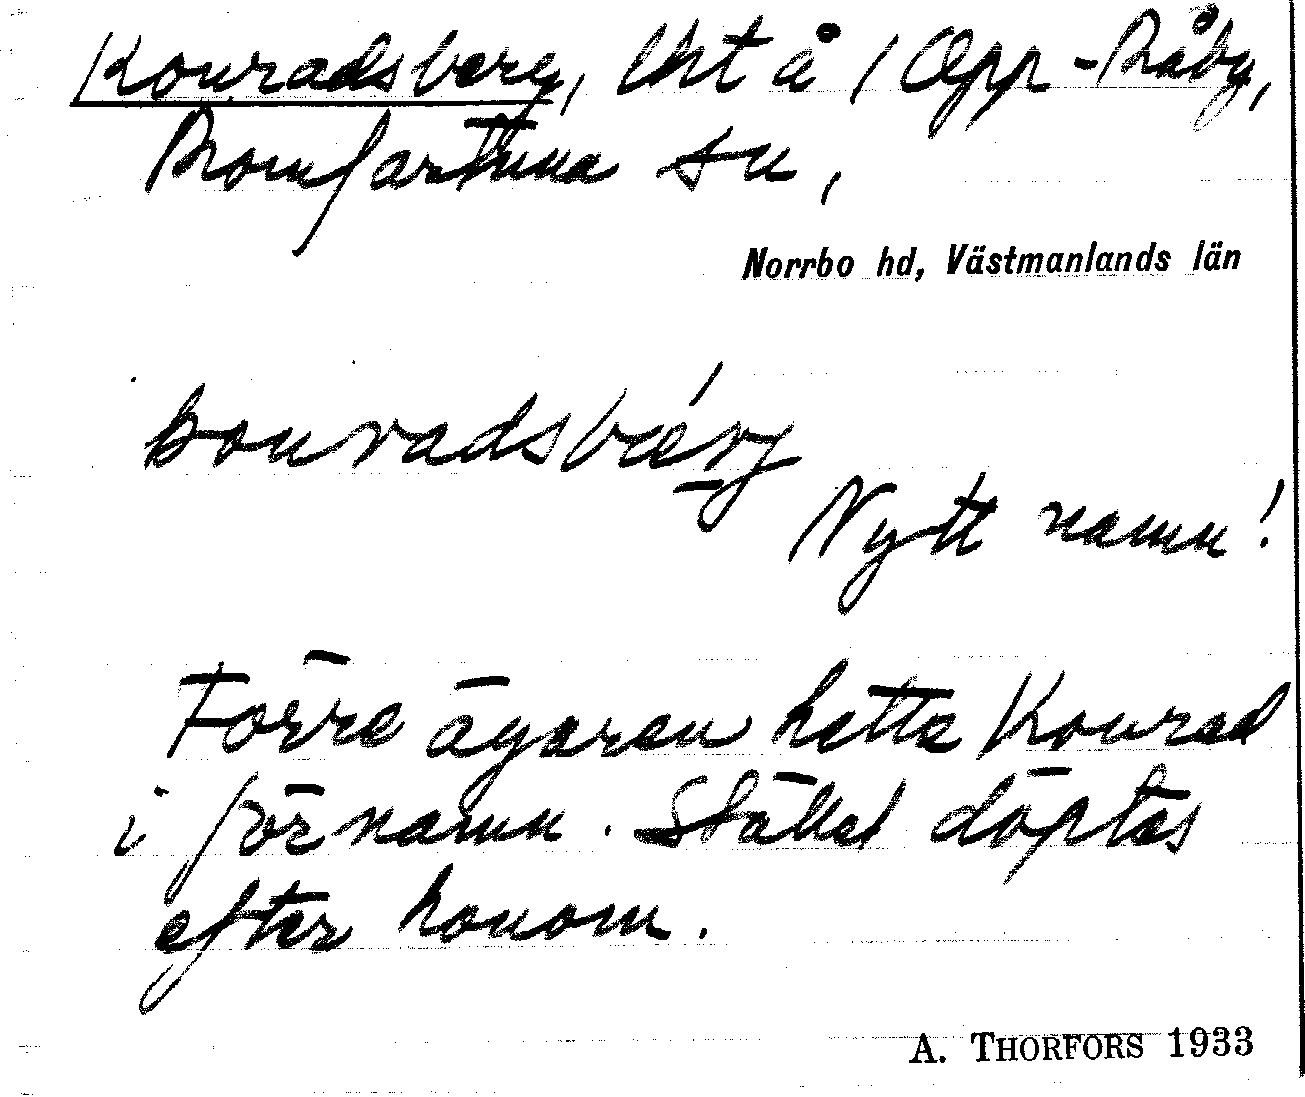 Konradsberg, lht å 1 Opp-Råby,
Romfartuna sn,
Norrbo hd, Västmanlands län
konradsbærj
Nytt namn!
Förre ägaren hette Konrad
i förnamn. Stället döptes
efter honom.
A. THORFORS 1933